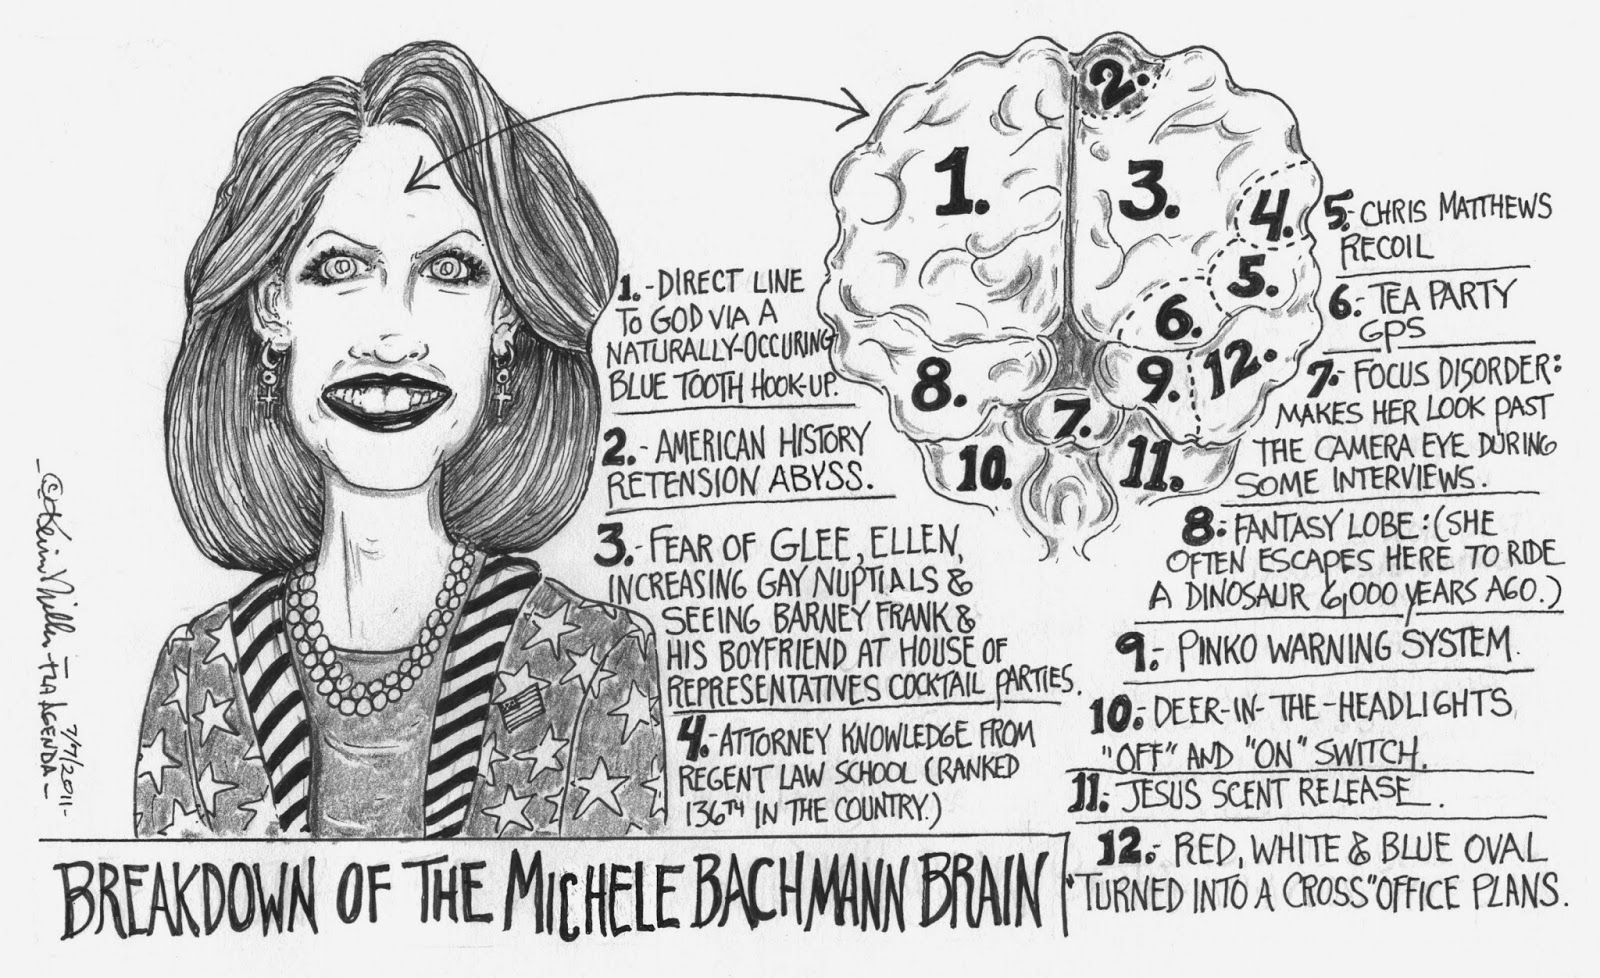 1.
2.
3.
4.
5.
6.
7.
8.
9.
10.
11.
12.
1.-DIRECT LINE
TO GOD VIA A
NATURALLY-OCCURING
BLUE TOOTH HOOK-UP.
2.-AMERICAN HISTORY
RETENSION ABYSS.
3.-FEAR OF GLEE, ELLEN,
INCREASING GAY NUPTIALS &
SEEING BARNEY FRANK &
HIS BOYFRIEND AT HOUSE OF
REPRESENTATIVES COCKTAIL PARTIES.
4.-ATTORNEY KNOWLEDGE FROM
REGENT LAW SCHOOL (RANKED
136TH IN THE COUNTRY.)
5.-CHRIS MATTHEWS
RECOIL
6.-TEA PARTY
GPS
7.-FOCUS DISORDER:
MAKES HER LOOK PAST
THE CAMERA EYE DURING
SOME INTERVIEWS.
8.-FANTASY LOBE:(SHE
OFTEN ESCAPES HERE TO RIDE
A DINOSAUR 6,000 YEARS AGO.)
9.-PINKO WARNING SYSTEM.
10.-DEER-IN-THE-HEADLIGHTS
"OFF" AND "ON" SWITCH.
11.-JESUS SCENT RELEASE.
12.-RED, WHITE & BLUE OVAL
"TURNED INTO A CROSS" OFFICE PLANS.
BREAKDOWN OF THE MICHELE BACHMANN BRAIN
-©Kevin Middleton
7/7/2011-